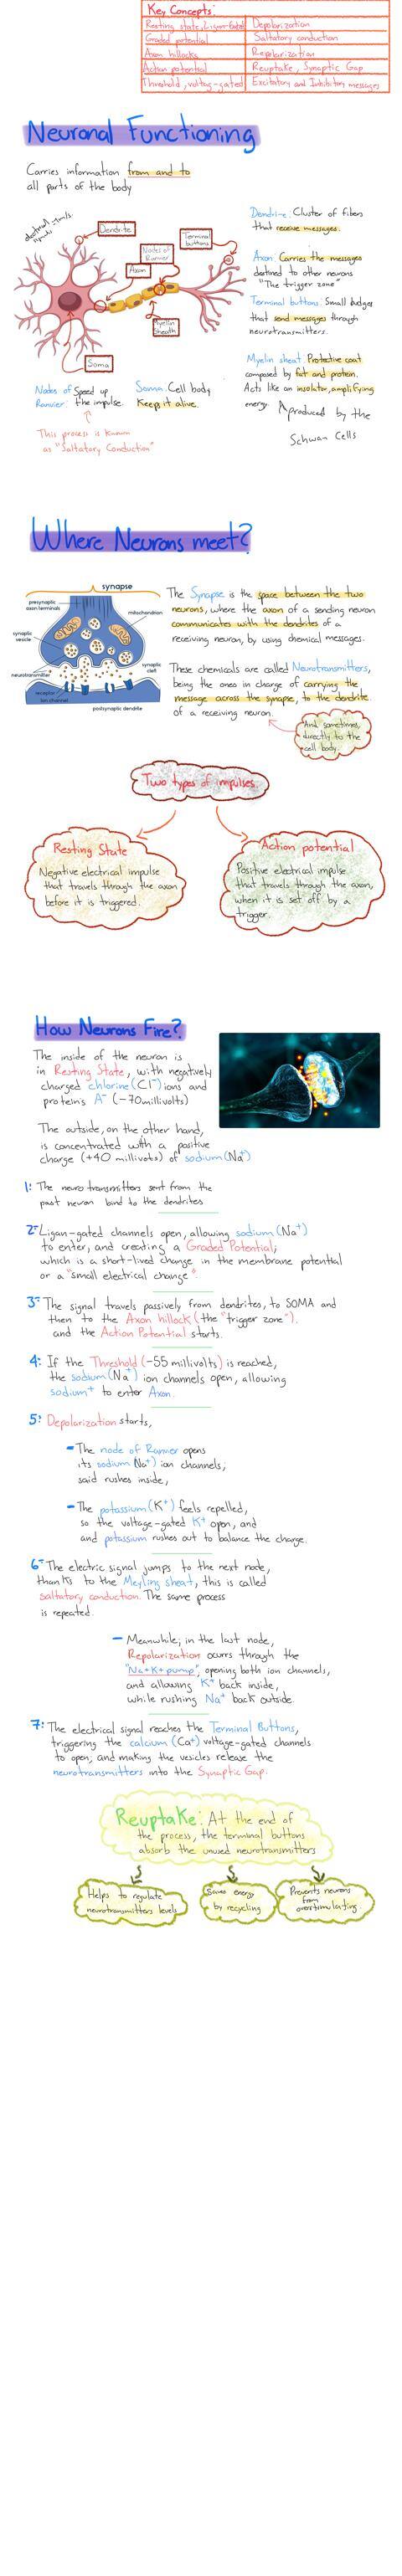 Key Concepts:
Resting state, Ligan-Gated
Depolarization
Graded potential
Saltatory conduction
Axon hillocks
Repolarization
Action potential
Reuptake, Synaptic Gap
Threshold, voltag-gated
Excitatory and Inhibitory messages
Neuronal Functioning
Carries information from and to
all parts of the body
inputs
Dendrite
Nodes of
Ranvier
Terminal
buttons
Axon
Myelin
Sheath
Soma
Dendrite: Cluster of fibers
that receive messages.
Axon: Carries the messages
destined to other neurons
"The trigger zone"
Terminal buttons: Small
that send messages through
neurotransmitters.
Myelin sheat: Protective coat
composed by fat and protein.
Acts like an insolator, amplifying
energy.
produced by the
Schwan Cells
Nodes of Speed up
Ranvier: the impulse.
This process is known
as "Saltatory Conduction"
Soma: Cell body
Keeps it alive.
Where Neurons meet?
synapse
presynaptic
axon terminals
mitochondrion
synaptic
vesicle
neurotransmitter
synaptic
cleft
receptor
ion channel
postsynaptic dendrite
The Synapse is the space between the two
neurons, where the axon of a sending neuron
communicates with the dendrites of a
receiving neuron, by using chemical messages.
These chemicals are called Neurotransmitters,
being the ones in charge of carrying the
message across the synapse, to the dendrite
of a receiving neuron.
And sometimes,
directly to the
cell body
Two types of impulses
Resting State
Negative electrical impulse
that travels through the axon
before it is triggered.
Action potential
Positive electrical impulse
that travels through the axon,
when it is set off by a
trigger.
How Neurons Fire?
The inside of the neuron is
in Resting State, with negatively
charged chlorine (Cl⁻) ions and
proteins A⁻ (-70millivolts)
The outside, on the other hand,
is concentrated with a positive
charge (+40 millivots) of sodium (Na⁺)
1: The neurotransmitters sent from the
past neuron bind to the dendrites
2: Ligan-gated channels open, allowing sodium (Na⁺)
to enter, and creating a Graded Potential;
which is a short-lived change in the membrane potential
or a "small electrical change".
3: The signal travels passively from dendrites, to SOMA and
then to the Axon hillock (the "trigger zone").
and the Action Potential starts.
4: If the Threshold (-55 millivolts) is reached,
the sodium (Na⁺) ion channels open, allowing
sodium⁺ to enter Axon
5: Depolarization starts,
- The node of Ranvier opens
its sodium (Na⁺) ion channels;
said rushes inside,
- The potassium (K⁺) feels repelled,
so the voltage-gated K⁺ open, and
and potassium rushes out to balance the charge.
6: The electric signal jumps to the next node,
thanks to the Meyling sheat, this is called
saltatory conduction. The same process
is repeated.
- Meanwhile; in the last node,
Repolarization ocurrs through the
"Na+K+pump", opening both ion channels,
and allowing K⁺ back inside,
while rushing Na⁺ back outside.
7: The electrical signal reaches the Terminal Buttons,
triggering the calcium (Ca⁺) voltage-gated channels
to open; and making the vesicles release the
neurotransmitters into the Synaptic Gap.
Reuptake: At the end of
the process, the terminal buttons
absorb the unused neurotransmitters
Helps to regulate
neurotransmitters levels
Saves energy
by recycling
Prevents neurons
from
overstimulating.